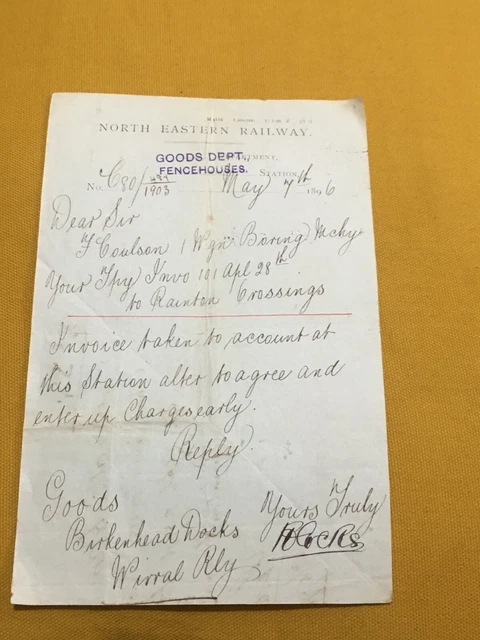 NORTH EASTERN RAILWAY.
GOODS DEPT.
FENCEHOUSES.
STATION,
No. C80/ 1903 May 7th 1896
Dear Sir
F Coulson 1 Wgn Boring Mchy
Your Tpy Invo 101 Apl 28th
to Rainton Crossings
Invoice taken to account at
this Station alter to agree and
enter up Charges early.
Reply.
Goods
Yours Truly
Birkenhead Docks
Wirral Rly